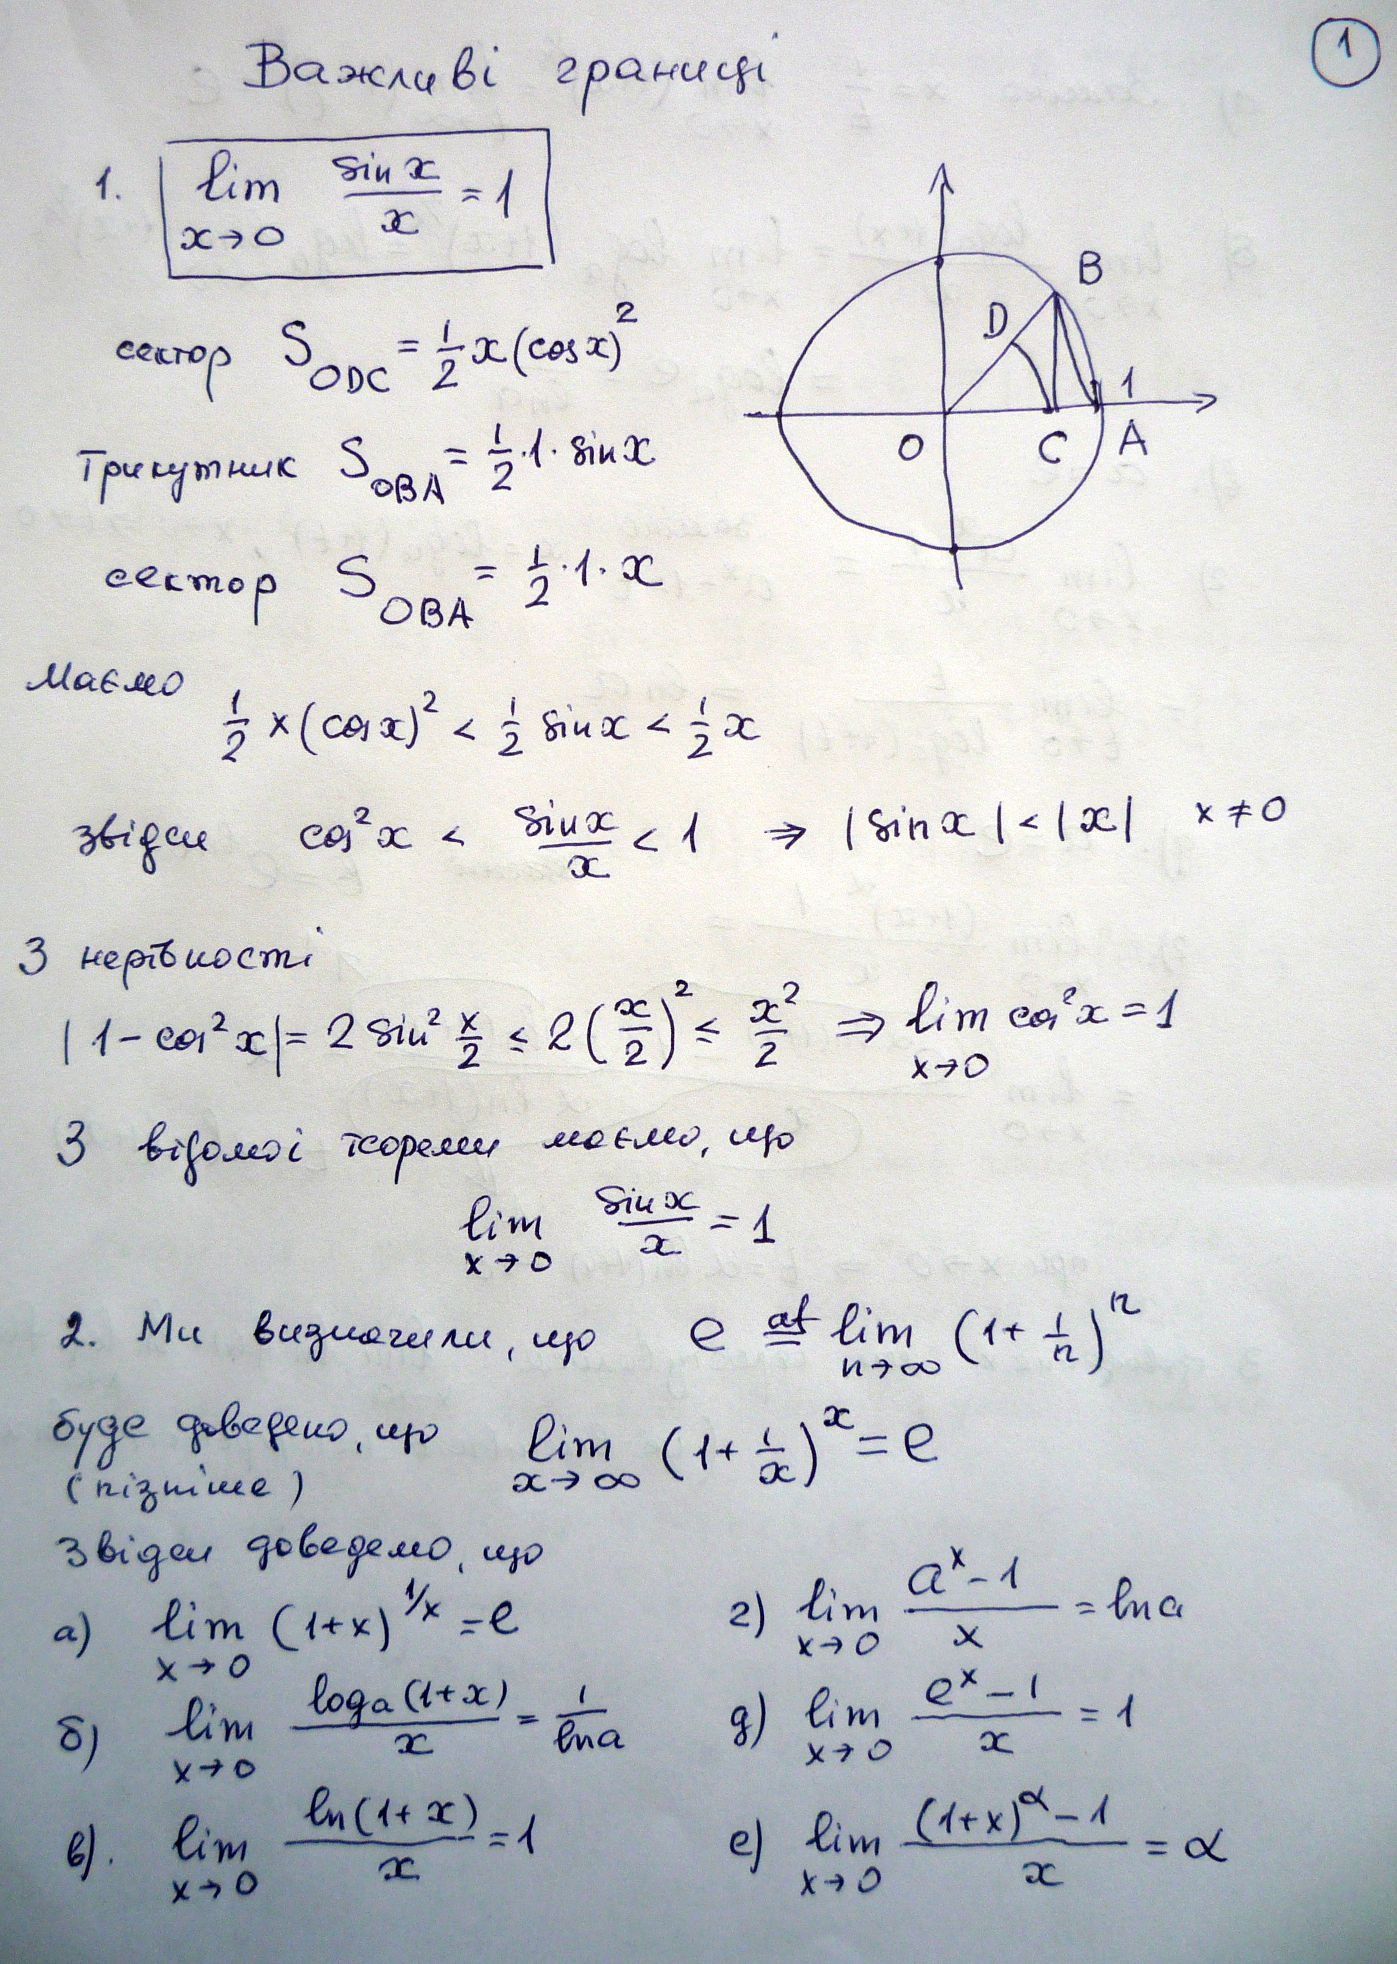 1
Важливі границі
1. lim x→0 sin x / x = 1
B
D
1
O
C
A
сектор S_ODC = 1/2 x (cos x)^2
трикутник S_OBA = 1/2 · 1 · sin x
сектор S_OBA = 1/2 · 1 · x
Маємо
1/2 x (cos x)^2 < 1/2 sin x < 1/2 x
звідси cos^2 x < sin x / x < 1 ⇒ |sin x| < |x| x ≠ 0
З нерівності
|1 - cos^2 x| = 2 sin^2 x/2 ≤ 2 (x/2)^2 ≤ x^2/2 ⇒ lim x→0 cos^2 x = 1
З відомої теореми маємо, що
lim x→0 sin x / x = 1
2. Ми визначили, що e df= lim n→∞ (1 + 1/n)^n
буде доведено, що lim x→∞ (1 + 1/x)^x = e
(пізніше)
Звідси доведемо, що
а) lim x→0 (1+x)^1/x = e
б) lim x→0 log_a (1+x) / x = 1/ln a
в). lim x→0 ln(1+x) / x = 1
г) lim x→0 a^x - 1 / x = ln a
д) lim x→0 e^x - 1 / x = 1
е) lim x→0 (1+x)^α - 1 / x = α